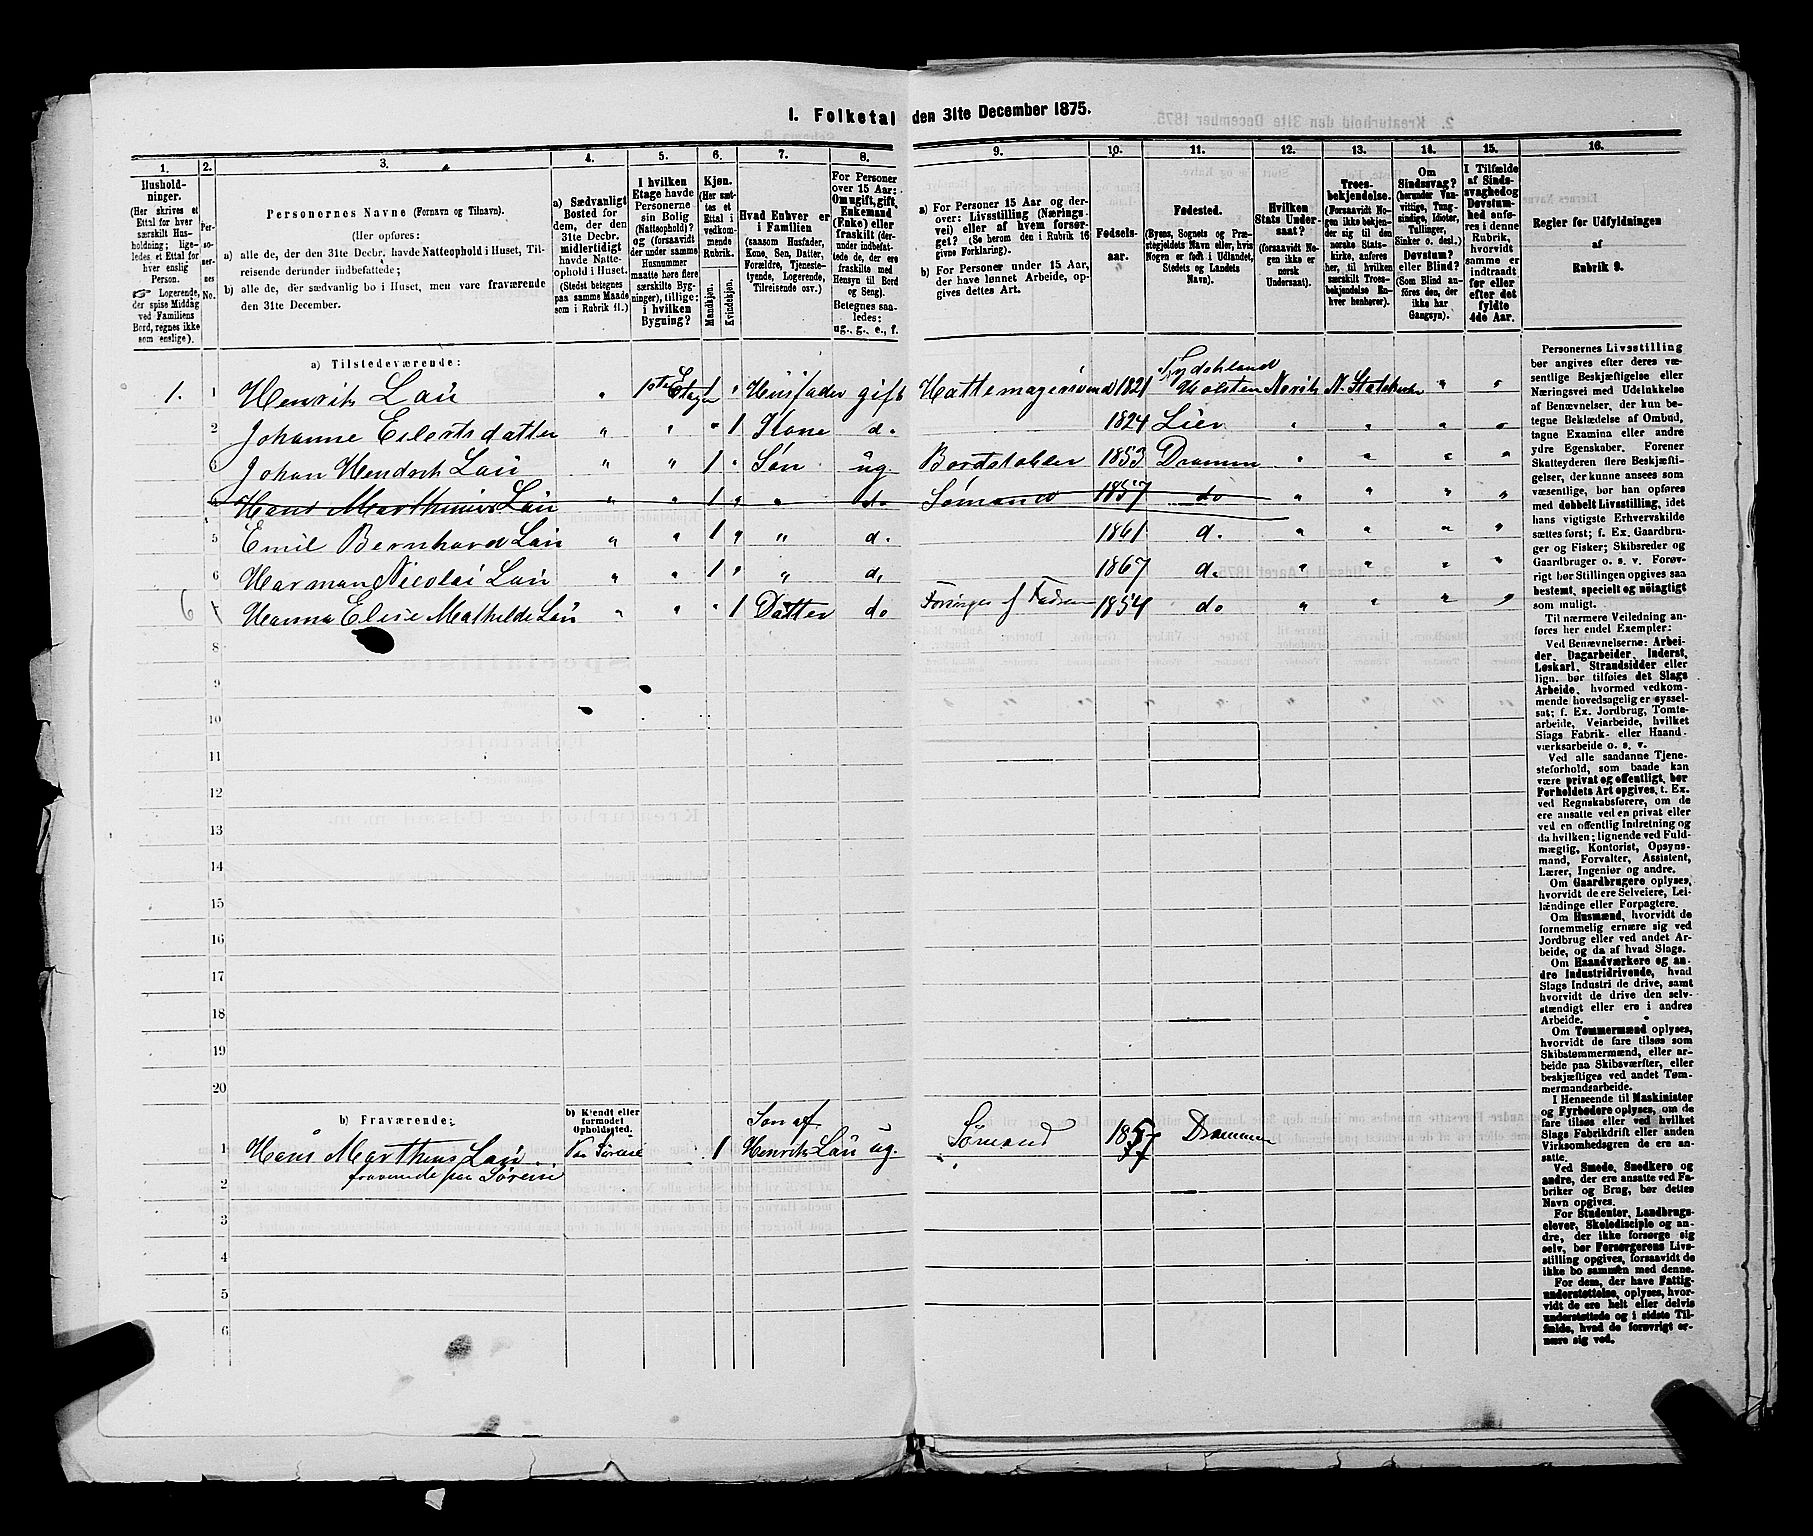 1. Folketal den 31te December 1875.
1.
2.
3.
4.
5.
6.
7.
8.
9.
10.
11.
12.
13.
14.
15.
16.
Hushold-
ninger.
(Her skrives et
Ettal for hver
særskilt Hus-
holdning; lige-
ledes et Ettal for
hver enslig
Person.
☞ Logerende,
der spise Middag
ved Familiens
Bord, regnes ikke
som enslige).
Per-
so-
ner-
nes
No.
Personernes Navne (Fornavn og Tilnavn).
(Her opføres:
a) alle de, der den 31te Decbr. havde Natteophold i Huset, Til-
reisende derunder indbefattede;
b) alle de, der sædvanlig bo i Huset, men vare fraværende
den 31te December.
a) Sædvanligt
Bosted for
dem, der den
31te Decbr.
midlertidigt
havde Natte-
ophold i Huset.
(Stedet betegnes
paa samme Maade
som i Rubrik 11.)
I hvilken
Etage havde
Personerne
sin Bolig
(Natteophold)?
og (forsaavidt
der under samme
Husnummer
maatte høre flere
særskilte Byg-
ninger), tillige:
i hvilken
Bygning?
Kjøn.
(Her sæt-
tes et
Ettal i
vedkom-
mende
Rubrik.
Mandkjøn.
Kvindekjøn.
Hvad Enhver er
i Familien
(saasom Husfader,
Kone, Søn, Datter,
Forældre, Tjeneste-
tyende, Logerende,
Tilreisende osv.)
For Personer
over 15 Aar:
Om ugift, gift,
Enkemand
(Enke) eller
fraskilt (der-
under indbefat-
tede de, der ere
fraskilte med
Hensyn til Bord
og Seng).
Betegnes saa-
ledes:
ug., g., e., f.
a) For Personer 15 Aar og der-
over: Livsstilling (Nærings-
vei) eller af hvem forsør-
get? (Se herom den i Rubrik 16
givne Forklaring).
b) For Personer under 15 Aar,
der have lønnet Arbeide, op-
gives dettes Art.
Fødsels-
aar.
Fødested.
(Byens, Sognets og Præ-
stegjeldets Navn eller, hvis
Nogen er født i Udlandet,
Stedets og Landets
Navn).
Hvilken
Stats Under-
saat?
(forsaavidt No-
gen ikke er
norsk
Undersaat).
Troes-
bekjendelse.
(Forsaavidt No-
gen ikke bekjen-
der sig til den
norske Stats-
kirke, anføres
her, til hvilken
særskilt Troes-
bekjendelse En-
hver henhører).
Om
Sindssvag?
(herunder Van-
vittige, Tung-
sindige, Idioter,
Tullinger,
Sinker o. desl.)
Døvstum?
eller Blind?
(Som Blind an-
føres den, der
ikke har
Gangsyn).
I Tilfælde
af Sinds-
svaghed og
Døvstum-
hed anfø-
res i denne
Rubrik,
hvorvidt
samme er
indtraadt
før eller
efter det
fyldte
4de Aar.
Regler for Udfyldningen
af
Rubrik 9.
a) Tilstedeværende:
1. 1 Henrik Lau " 1ste Etage 1 " Husfader gift Hattemagersvend 1821 Holsten Norsk N. Statskirke " "
2 Johanne Eilertsdatter " " " 1 Kone d. 1824 Lier " " " "
3 Johan Hendrch Lau " " 1 " Søn ug. Bordstabler 1853 Dramen " " " "
4 Hans Marthinius Lau " " 1 " " do Sømand 1857 do " " " "
5 Emil Bernhard Lau " " 1 " " d. 1861 d. " " " "
6 Harman Nicolai Lau " " 1 " " d. 1867 d. " " " "
6 7 Hanna Elise Mathilde Lau " " " 1 Datter do Forsørges af Faderen 1854 do " " " "
8
9
10
11
12
13
14
15
16
17
18
19
20
b) Fraværende:
b) Kjendt eller
formodet
Opholdssted.
Søn af
1 Hans Marthins Lau Paa Søreise 1 Henrik Lau ug. Sømand 1857 Drammen
2 fraværende paa Søreise
3
4
5
6
Personernes Livsstilling
bør angives efter deres væ-
sentlige Beskjæftigelse eller
Næringsvei med Udelukkelse
af Benævnelser, der kun be-
tegne Beklædelse af Ombud,
tagne Examina eller andre
ydre Egenskaber. Forener
Skatteyderen flere Beskjæfti-
gelser, der kunne ansees som
væsentlige, bør han opføres
med dobbelt Livsstilling, idet
hans vigtigste Erhvervskilde
sættes først; f. Ex. Gaardbru-
ger og Fisker; Skibsreder og
Gaardbruger o. s. v. Forøv-
rigt bør Stillingen opgives saa
bestemt, specielt og nöiagtigt
som muligt.
Til nærmere Veiledning an-
føres her endel Exempler:
Ved Benævnelserne: Arbei-
der, Dagarbeider, Inderst,
Løskarl, Strandsidder eller
lign. bør tilføies det Slags
Arbeide, hvormed vedkom-
mende hovedsagelig er syssel-
sat; f. Ex. Jordbrug, Tomte-
arbeide, Veiarbeide, hvilket
Slags Fabrik- eller Haand-
værksarbeide o. s. v.
Ved alle saadanne Tjene-
steforhold, som baade kan
være privat og offentligt, bør
Forholdets Art opgives, t. Ex.
ved Regnskabsførere, om de
ere ansatte ved en privat eller
ved en offentlig Indretning og
da hvilken; lignende ved Fuld-
mægtig, Kontorist, Opsyns-
mand, Forvalter, Assistent,
Lærer, Ingeniør og andre.
Om Gaardbrugere oplyses,
hvorvidt de ere Selveiere, Lei-
lændinge eller Forpagtere.
Om Husmænd, hvorvidt de
fornemmelig ernære sig ved
Jordbrug eller ved andet Ar-
beide, og da af hvad Slags.
Om Haandværkere og an-
dre Industridrivende, hvad
Slags Industri de drive, samt
hvorvidt de drive den selv-
stændigt eller ere i andres
Arbeide.
Om Tømmermænd oplyses,
hvorvidt de fare tilsøs som
Skibstømmermænd, eller ar-
beide paa Skibsværfter, eller
beskjæftiges ved andet Tøm-
mermandsarbeide.
I Henseende til Maskinister
og Fyrbødere oplyses, om de
fare tilsøs eller ved hvilket
Slags Fabrikdrift eller anden
Virksomhedsgren de ere an-
satte.
Ved Smede, Snedkere og
andre, der ere ansatte ved Fa-
briker og Brug, bør dettes
Navn opgives.
For Studenter, Landbrugs-
elever, Skoledisciple og an-
dre, der ikke forsørge sig
selv, bør Forsørgerens Livs-
stilling opgives, forsaavidt de
ikke bo sammen med denne.
For dem, der have Fattig-
understøttelse, oplyses, hvor-
vidt de ere helt eller delvis
understøttede og i sidste Til-
fælde, hvad de forøvrigt er-
nære sig ved.